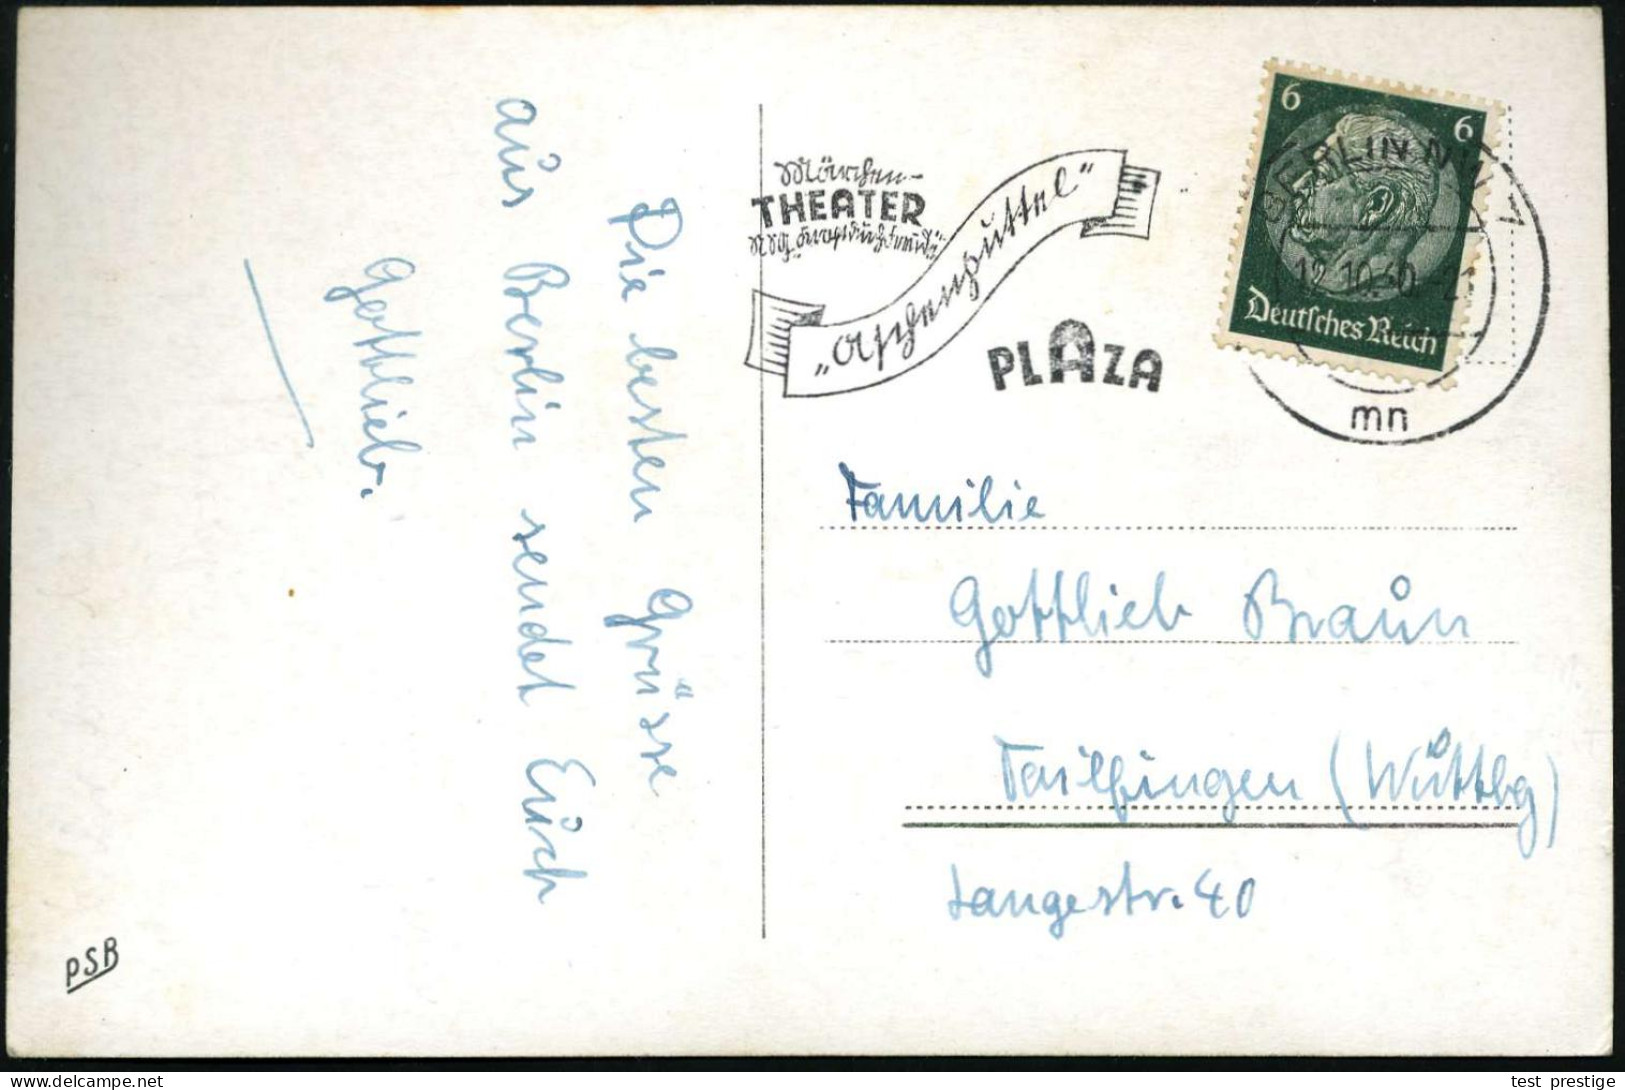 Die besten Grüsse
aus Berlin sendet Euch
Gottlieb.
Märchen-
THEATER
NSG. "Kraft durch Freude"
„Aschenputtel“
PLAZA
6
6
Deutsches Reich
BERLIN NW 7
12.10.40.-21
mn
Familie
Gottlieb Braun
Tailfingen (Württbg)
Langestr. 40
PSB
test_prestige